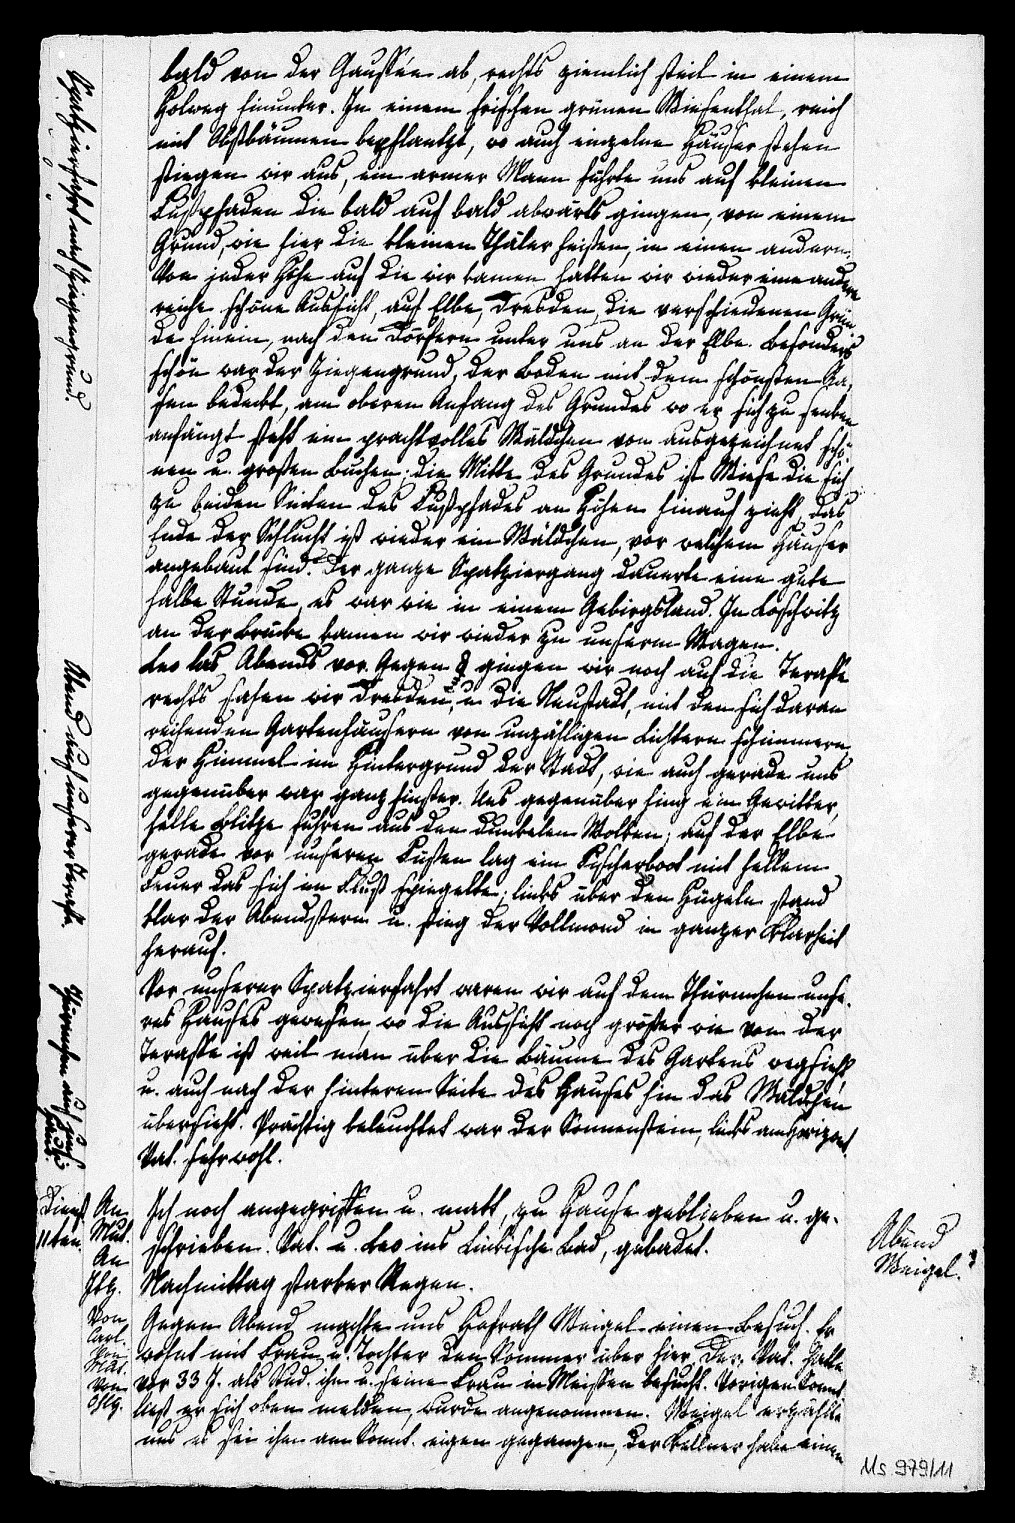 bald von der Gaussée ab, rechts ziemlich steil in einem
Holweg hinunter. In einem frischen grünen Wiesenthal, reich
mit Obstbäumen bepflantzt, wo auch einzelne Häuser stehen
stiegen wir aus, ein armer Mann führte uns auf kleinen
Fußpfaden die bald auf bald abwärts gingen, von einem
Grund, wie hier die kleinen Thäler heißen, in einen andern.
Von jeder Höhe auf die wir kamen hatten wir wieder eine andere
reiche schöne Aussicht, auf Elbe, Dresden, die verschiedenen Grün-
de hinein, nach den Dörfern unter uns an der Elbe. Besonders
schön war der Ziegengrund, der Boden mit dem schönsten Ra-
sen bedeckt, am oberen Anfang des Grundes wo er sich zu senken
anfängt steht ein prachtvolles Wäldchen von ausgezeichnet schö-
nen u. großen Buchen; die Mitte des Grundes ist Wiese die sich
zu beiden Seiten des Fußpfades an Höhen hinauf zieht, das
Ende der Schlucht ist wieder ein Wäldchen, vor welchem Häuser
angebaut sind. Der ganze Spatziergang dauerte eine gute
halbe Stunde, es war wie in einem Gebirgsland. In Loschwitz
an der Brücke kamen wir wieder zu unserm Wagen.
Leo las Abends vor. Gegen 9 gingen wir noch auf die Terasse
rechts sahen wir Dresden, u die Neustadt, mit den sich daran
reihenden Gartenhäusern von unzähligen Lichtern schimmern,
der Himmel im Hintergrund der Stadt, wie auch gerade uns
gegenüber war ganz finster. Uns gegenüber hing ein Gewitter,
helle Blitze fuhren aus den dunkelen Wolken; auf der Elbe
gerade vor unseren Füßen lag ein Fischerboot mit hellem
Feuer das sich im Fluß spiegelte; links über den Hügeln stand
klar der Abendstern u. stieg der Vollmond in ganzer Klarheit
herauf.
Vor unserer Spatzierfahrt waren wir auf dem Thürmchen unse-
res Hauses gewesen, wo die Aussicht noch größer wie von der
Terasse ist weil man über die Bäume des Gartens wegsieht
u. auch nach der hinteren Seite des Hauses hin das Wäldchen
übersieht. Prächtig beleuchtet war der Sonnenstein, links am Horizont.
Vat. sehr wohl.
Ich noch angegriffen u. matt, zu Hause geblieben u. ge-
schrieben. Vat. u. Leo ins Linkische Bad, gebadet.
Nachmittag starker Regen.
Gegen Abend machte uns Hofrath Weigel einen Besuch. Er
wohnt mit Frau u. Tochter den Sommer über hier. Der Vat. hatte
vor 33 J. als Stud. ihn u. seine Frau in Meissen besucht. Vorigen Sonnt.
ließ er sich oben melden, wurde angenommen. Weigel erzählte
uns es sei ihm am Sonnt. eigen gegangen, der Kellner habe einen
Spatzierfahrt nach Ziegengrund.
Abend auf unserer Terasse.
Thürmchen auf uns. Haus.
Dienst
11ten.
An
Mut.
An
Von
Carl.
Von
Mat.
Von
Abend
Weigel.
Ms 979/11